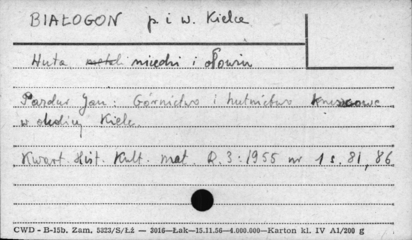 BIAŁOGON p i w. Kielce
Huta miedzi i ołowiu
Pazdur Jan: Górnictwo i hutnictwo kruszcowe
w okolicy Kielc
Kwart. Hist. Kult. mat. R. 3: 1955 nr 1 s. 81, 86
CWD - B-15b. Zam. 5323/S/Łż — 3016—Łak—15.11.56—4.000.000—Karton kl. IV A1/200 g